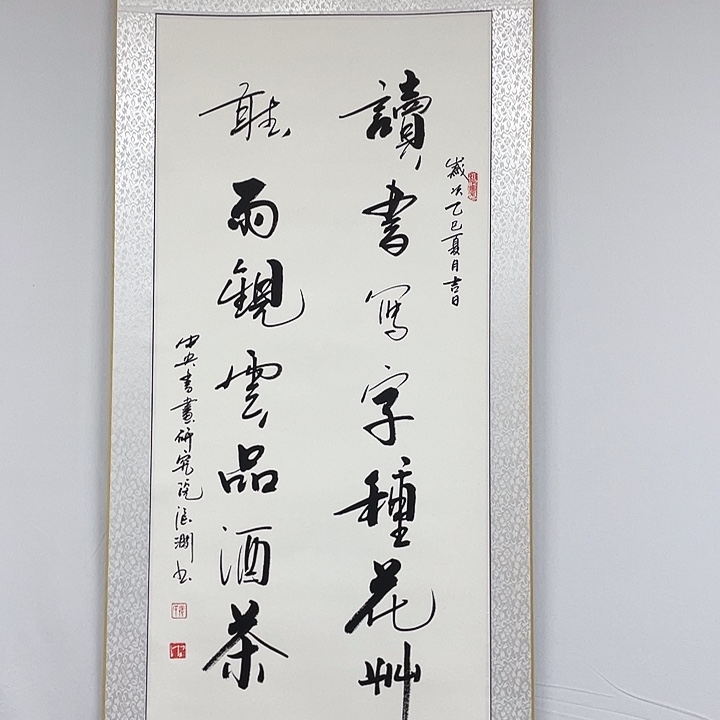 歲次乙巳夏月吉日
讀書写字種花艸
聽雨觀雲品酒茶
中央書畫研究院濤澍书